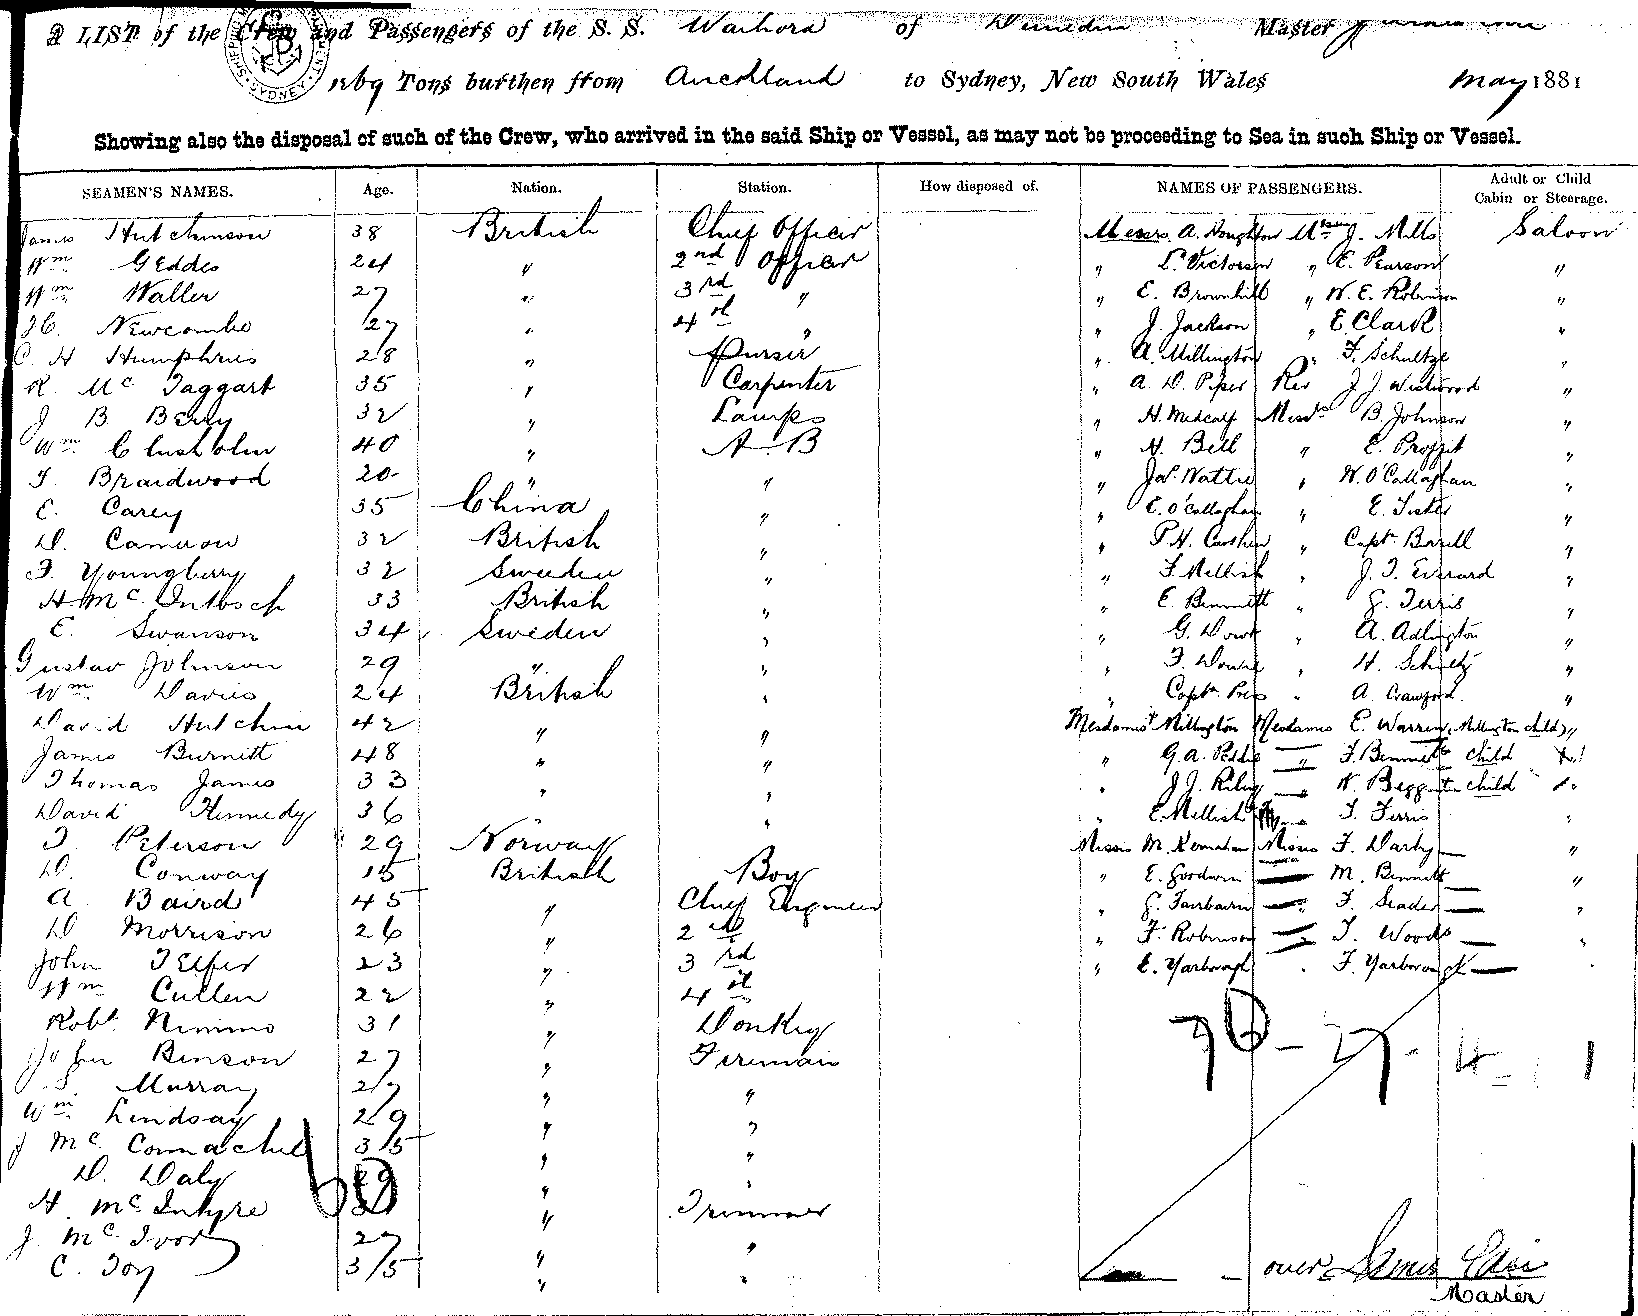 A LIST of the Crew and Passengers of the S. S. Waihora of Dunedin Master
1269 Tons burthen from Auckland to Sydney, New South Wales May 1881
Showing also the disposal of such of the Crew, who arrived in the said Ship or Vessel, as may not be proceeding to Sea in such Ship or Vessel.
SEAMEN'S NAMES. Age. Nation. Station. How disposed of. NAMES OF PASSENGERS. Adult or Child Cabin or Steerage.
James Hutchinson 38 British Chief Officer Messrs A. Houghton J. Mills Saloon
Wm Geddes 24 " 2nd Officer " L. Victorsen " E. Pearson "
Wm Waller 27 " 3rd " " E. Brownhill " W. E. Robinson "
Newcombe 27 " 4th " " J. Jackson " E. Clark "
C. H Humphries 28 " Purser " A. Millington " F. Schultze "
R. Mc Taggart 35 " Carpenter " A. D. Piper Rev J. J. Westwood "
J B Berry 32 " Lamps " H. Metcalf Messrs B. Johnson "
Wm Chisholm 40 " A B " H. Bell " E. Proffit "
T. Braidwood 20 " " " Jas Wattie " W. O'Callaghan "
C. Carey 35 China " " E. O'Callaghan " E. "
D. Cameron 32 British " " P. H. " Capt. "
F. Youngberry 32 Sweden " " F. Mellish " J. T. Everard "
H Mc Intosh 33 British " " E. Bennett " G. Ferris "
C. Swanson 34 Sweden " " G. " A. Adlington "
Gustav Johnson 29 " " " F. " H. Schultz "
Wm Davies 24 British " " Captn " A. Crawford "
David Hutchin 42 " " Mesdames Millington Mesdames E. Warren, Millington child "
James Burnett 48 " " " G. A. " F. Bennett child
Thomas James 33 " " " J. J. Riley " W. child "
David Kennedy 36 " " " E. Mellish " F. Ferris "
T. Peterson 29 Norway Misses M. Misses F. Darby "
D. Conway 15 British Boy " E. Goodwin M. Bennett "
A Baird 45 " Chief Engineer " G. Fairbairn " F. "
D Morrison 26 " 2nd " F. Robinson " T. Woods "
John Telfer 23 " 3rd " E. Yarborough " F. Yarborough
Wm Cullen 22 " 4th
Robt. Nimmo 31 " Donkey
John Benson 27 " Fireman
Murray 27 " "
Wm Lindsay 29 " "
J Mc Connachie 35 " "
D. Daly 29 " "
H. Mc Intyre " Trimmer
J. Mc Ivor 27 " "
C. Toy 35 " "
over James Edie
Master